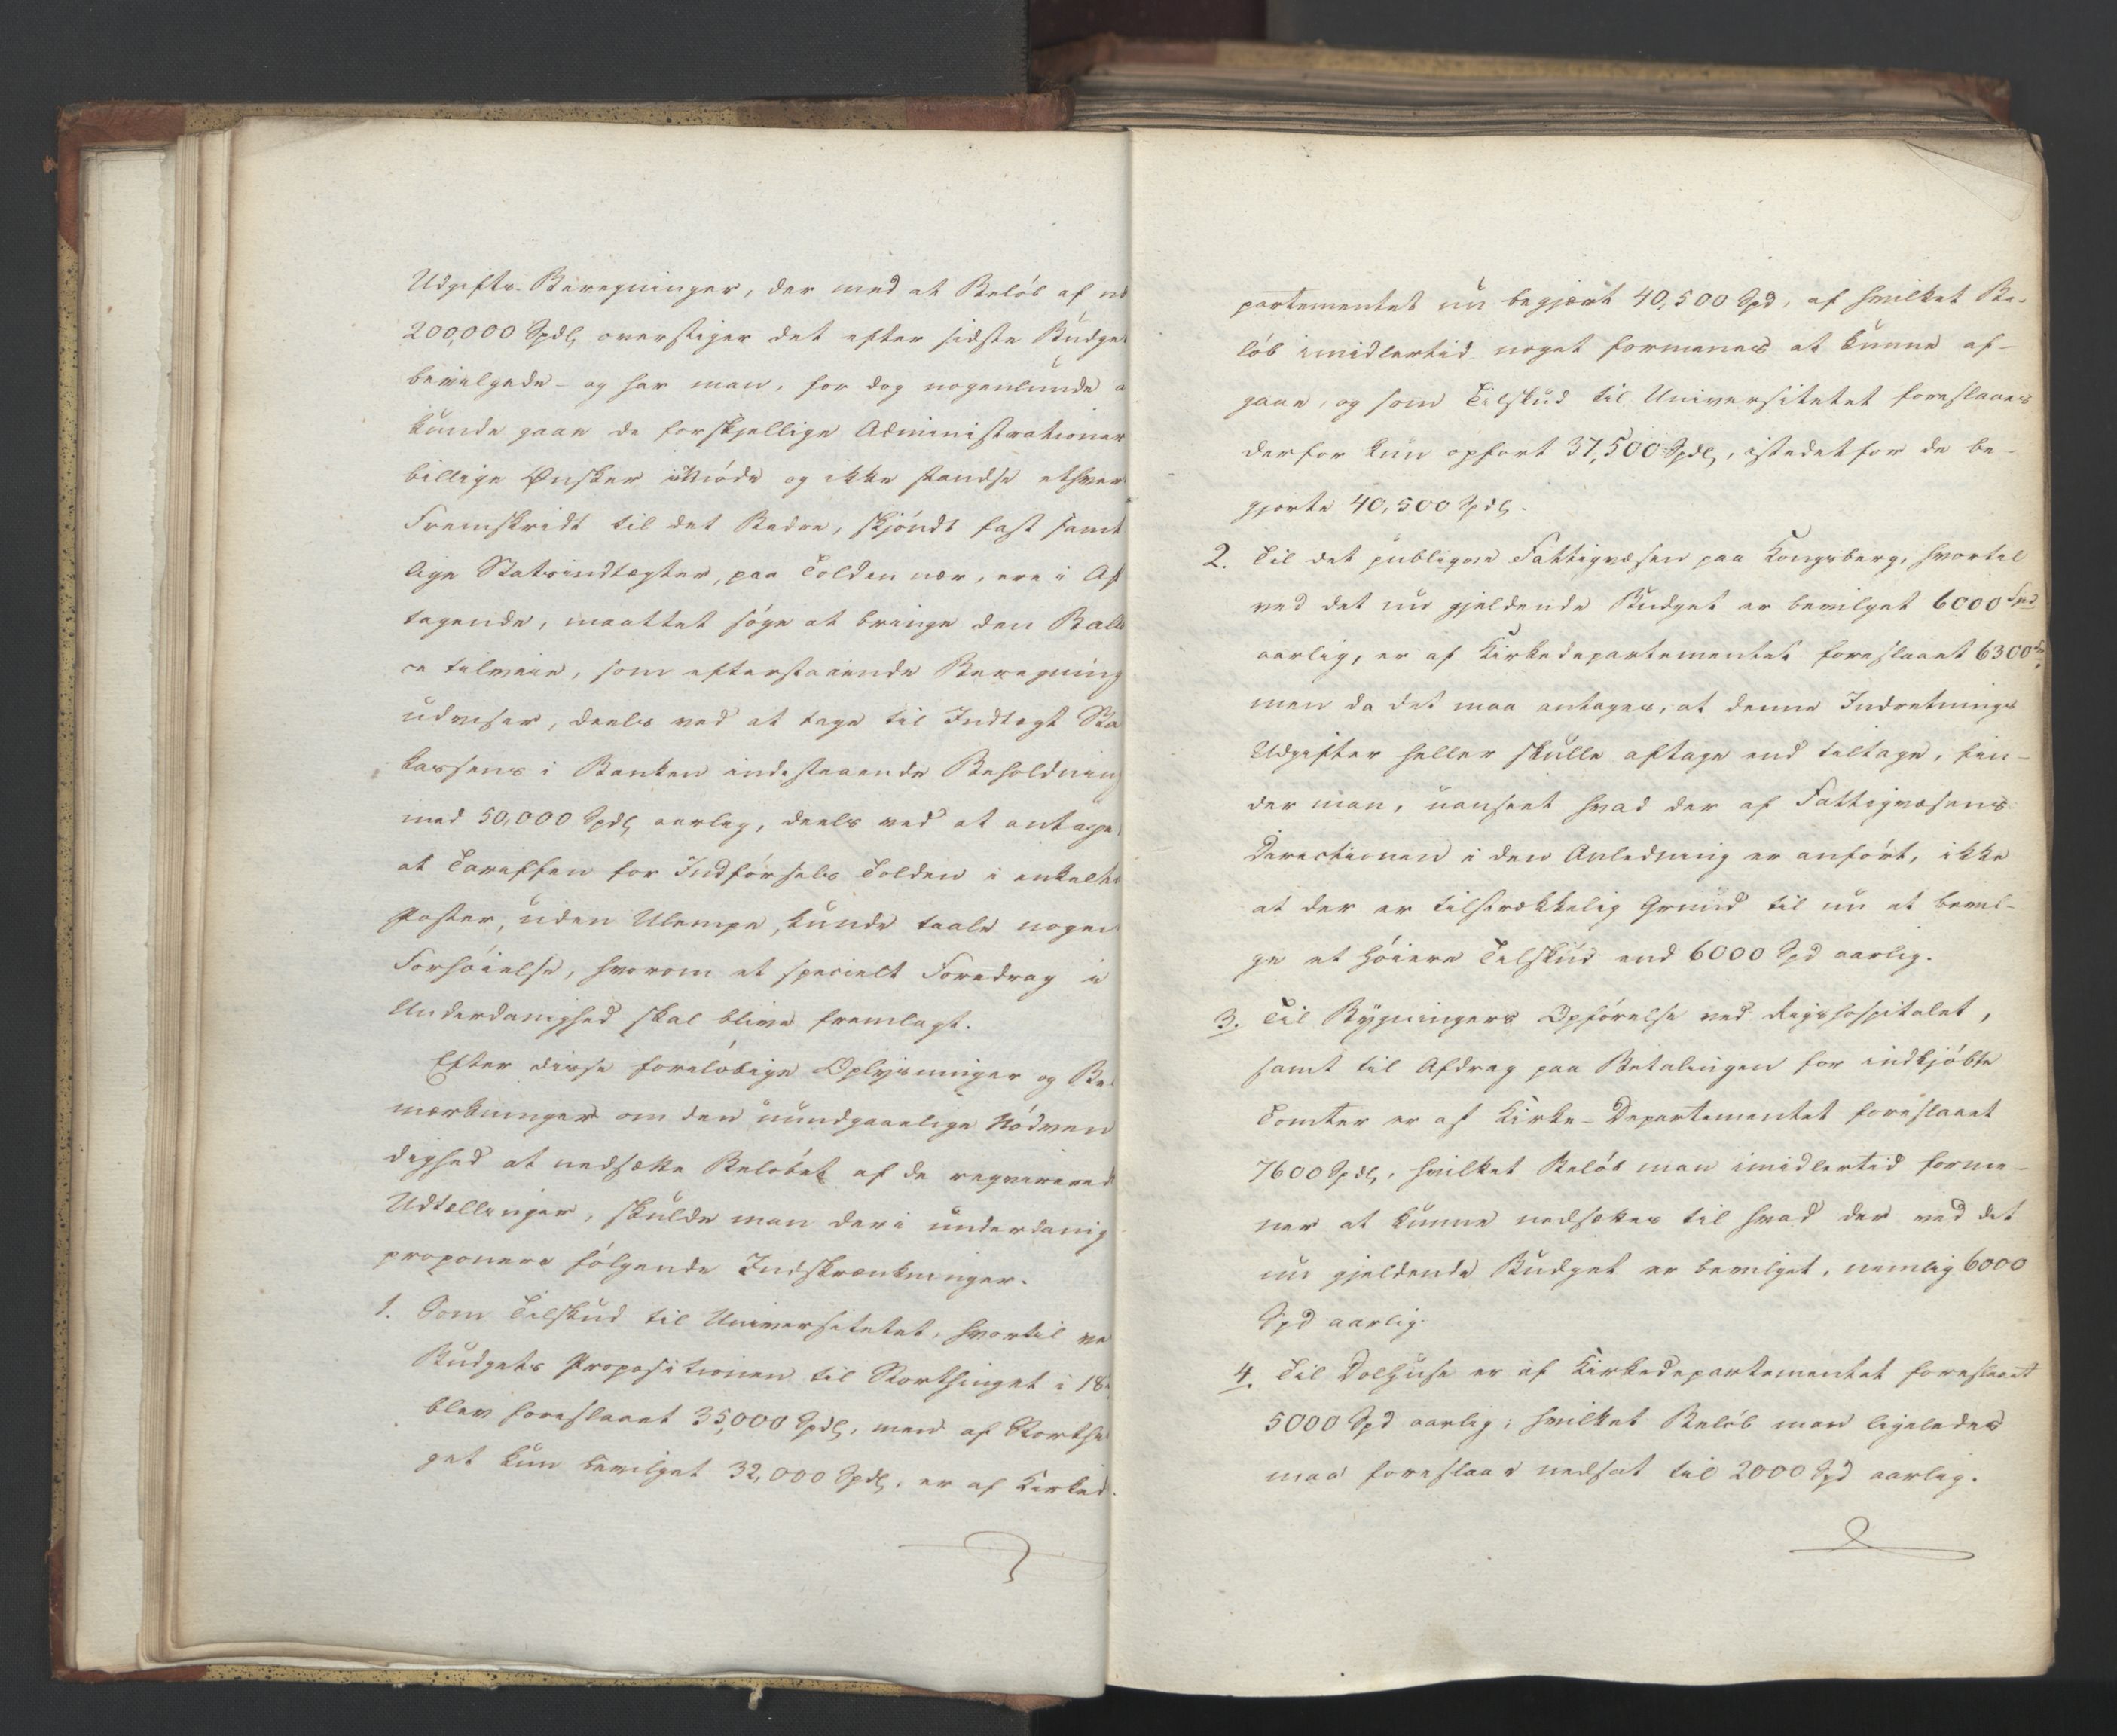 Udgifts-Beregninger, der med et Beløb af
200,000 Spdl, overstiger det efter sidste Budget
bevilgede - og har man, for dog nogenlunde a
kunde gaae de forskjellige Administrationer
billige Ønsker imøde og ikke standse ethver
Fremskridt til det Bedre, skjøndt fast samt
lige Statsindtægter, paa Tolden nær, ere i Af
tagende, maattet søge at bringe den Balla
ce tilveie, som efterstaaende Beregning
udviser, deels ved at tage til Indtægt Sta
kassens i Banken indestaaende Beholdning
med 50,000 Spdl, aarlig, deels ved at antage
at Tariffen for Indførsels Tolden i enkelte
Poster, uden Ulempe, kunde taale nogen
Forhøielse, hvorom et specielt Foredrag i
Underdanighed skal blive fremlagt.
Efter disse foreløbige Oplysninger og Be-
mærkninger om den uundgaaelige Nødven
dighed at nedsætte Beløbet af de reqvirered
Udtællinger, skulde man deri underdanig
proponere følgende Indskrænkninger.
1. Som Tilskud til Universitetet, hvortil ve
Budgets Propositionen til Storthinget i 18
blev foreslaaet 35,000 Spdl, men af Storthi
get kun bevilget 32,000 Spdl, er af Kirked.
partementet nu begjært 40,500 Spd, af hvilket Be-
løb imidlertid noget formenes at kunne af-
gaae, og som Tilskud til Universitetet foreslaaes
derfor kun opført 37,500 Spdl, istedetfor de be-
gjerte 40,500 Spdl.
2. Til det publiqve Fattigvæsen paa Kongsberg, hvortil
ved det nu gjeldende Budget er bevilget 6000 Spd
aarlig, er af Kirkedepartementet foreslaaet 6300 Sp,
men da det maa antages, at denne Indretnings
Udgifter heller skulle aftage end tiltage, fin-
der man, uanseet hvad der af Fattigvæsens
Directionen i den Anledning er anført, ikke
at der er tilstrækkelig Grund til nu at bevil-
ge et høiere Tilskud end 6000 Spd aarlig.
3. Til Bygningers Opførelse ved Rigshospitalet,
samt til Afdrag paa Betalingen for indkjøbte
Tomter er af Kirke-Departementet foreslaaet
7600 Spdl, hvilket Beløb man imidlertid forme-
ner at kunne nedsættes til hvad der ved det
nu gjeldende Budget er bevilget, nemlig 6000
Spd aarlig.
4. Til Dolhuse er af Kirkedepartementet foreslaaet
5000 Spd aarlig; hvilket Beløb man ligeledes
maa foreslaae nedsat til 2000 Spd aarlig.